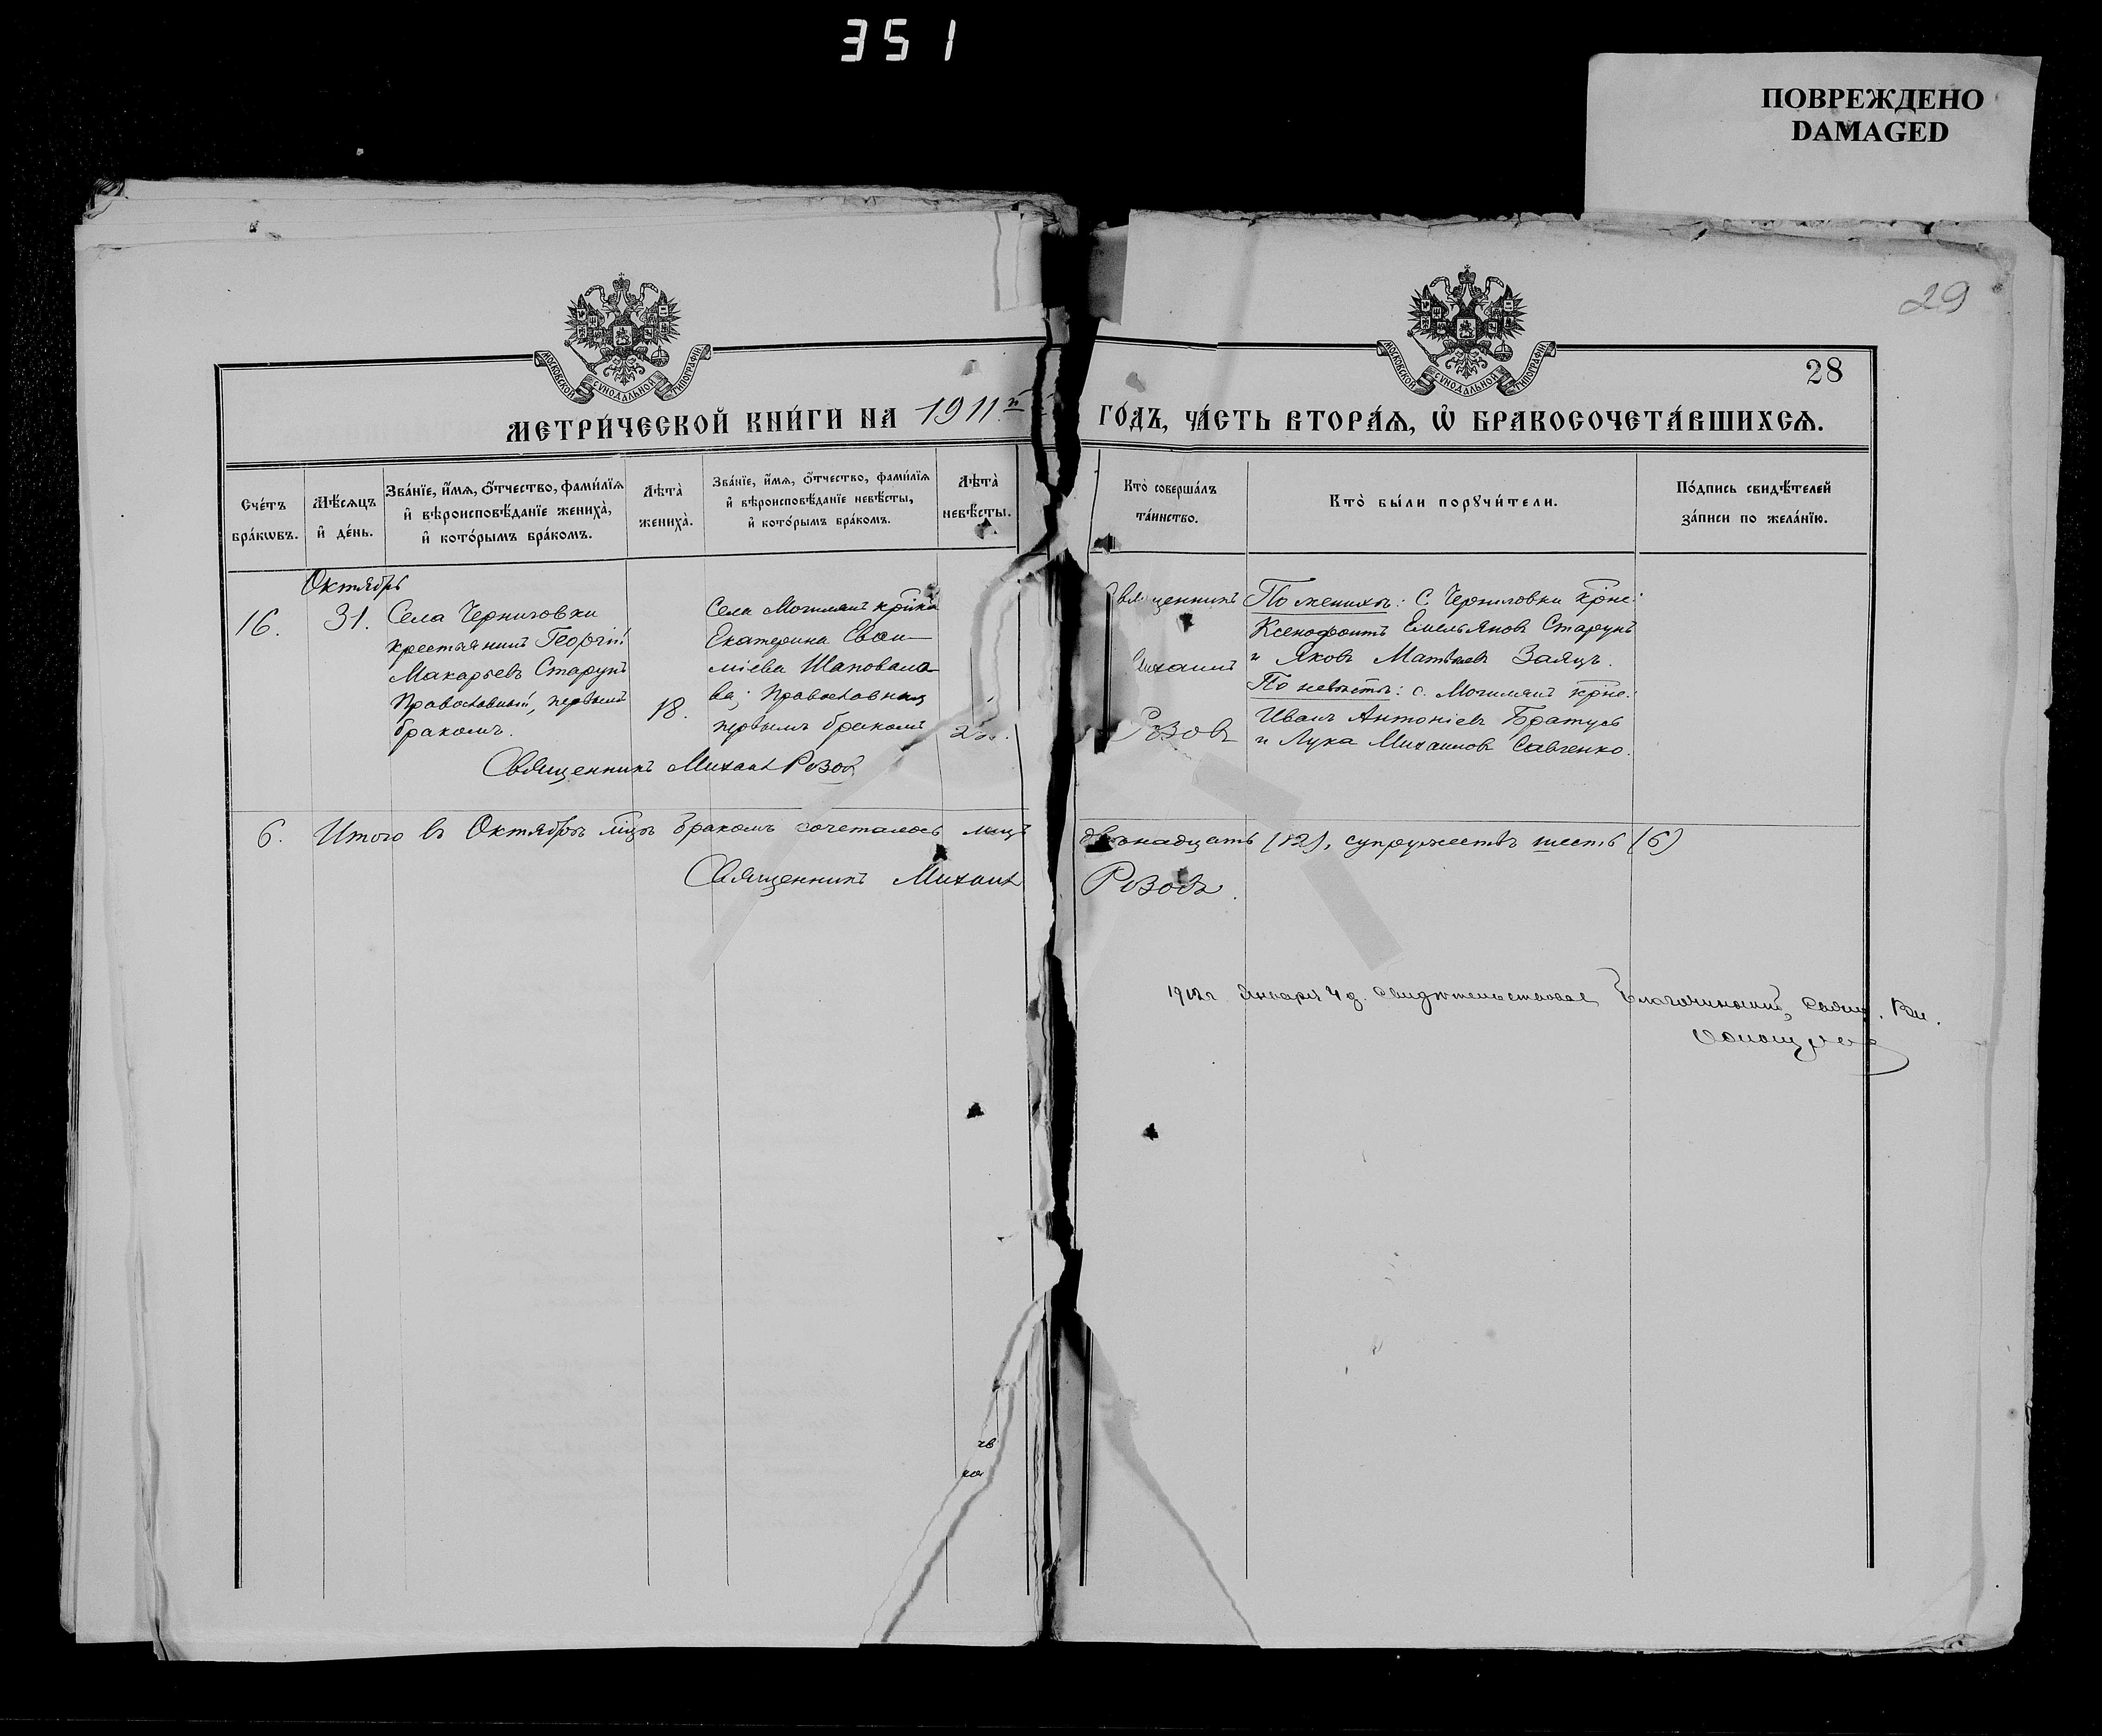 351
ПОВРЕЖДЕНО
DAMAGED
29
28
МОСКОВСКОЙ СУНОДАЛЬНОЙ ТИПОГРАФІИ
МОСКОВСКОЙ СУНОДАЛЬНОЙ ТИПОГРАФІИ
МЕТРИ́ЧЕСКОЙ КНИ́ГИ НА 1911й ГО́ДЪ, ЧА́СТЬ ВТОРА́Я, Ѡ҆ БРАКОСОЧЕТА́ВШИХСЯ.
Сче́тъ бра́кѡвъ.
Мѣ́сяцъ и҆ де́нь.
Зва́нїе, и҆́мя, ѻ҆́тчество, фами́лїя и҆ вѣроисповѣ́данїе жениха̀, и҆ кото́рымъ бра́комъ.
Лѣта̀ жениха̀.
Зва́нїе, и҆́мя, ѻ҆́тчество, фами́лїя и҆ вѣроисповѣ́данїе невѣ́сты, и҆ кото́рымъ бра́комъ.
Лѣта̀ невѣ́сты.
Кто̀ соверша́лъ та́инство.
Кто̀ бы́ли порꙋчи́тели.
По́дпись свидѣ́телей за́писи по жела́нїю.
Октябрь
16.
31.
Села Черниговки
крестьянинъ Георгій
Макарьевъ Старунъ
Православный, первымъ
бракомъ.
18.
Села Могилянъ крiка
Екатерина Евси–
міева Шаповало–
ва; Православная
первымъ бракомъ
Священникъ
Михаилъ
Розовъ
По женихѣ: с. Черниговки крне:
Ксенофонтъ Емельяновъ Старунъ
и Яковъ Матвѣевъ Заяцъ.
По невѣстѣ: с. Могилянъ крне:
Иванъ Антоніевъ Братусь
и Лука Михаиловъ Савченко.
Священникъ Михаилъ Розовъ
6. Итого въ Октябрѣ мцѣ бракомъ сочеталось лицъ двѣнадцать (12), супружествъ шесть (6)
Священникъ Михаилъ Розовъ.
1912г Января 4 д. свидѣтельствовалъ Благочинный, Свящ. Вл.